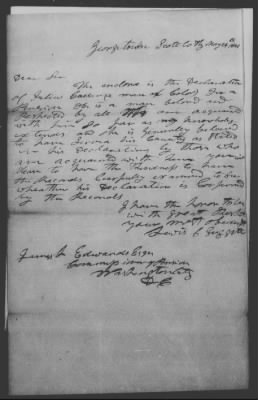 Georgetown Scott Co Ky May 24th
Dear Sir
The enclosed is the Declaration
of Julius a man of Color for a
Pension He is a man beloved and
Respected by all who are acquainted
with him So far as my knowledge
extends and he is Generally believed
to have served his Country as stated
in his declaration by those who
are acquainted with him you will
please to have the goodness to have
the Records Carefully examined to see
wheather his Declaration is Confirmed
by the Records
I have the honor to be
with great
your most
Lewis C
James L Edwards Esqr
Commissioner of Pensions
Washington City
D C